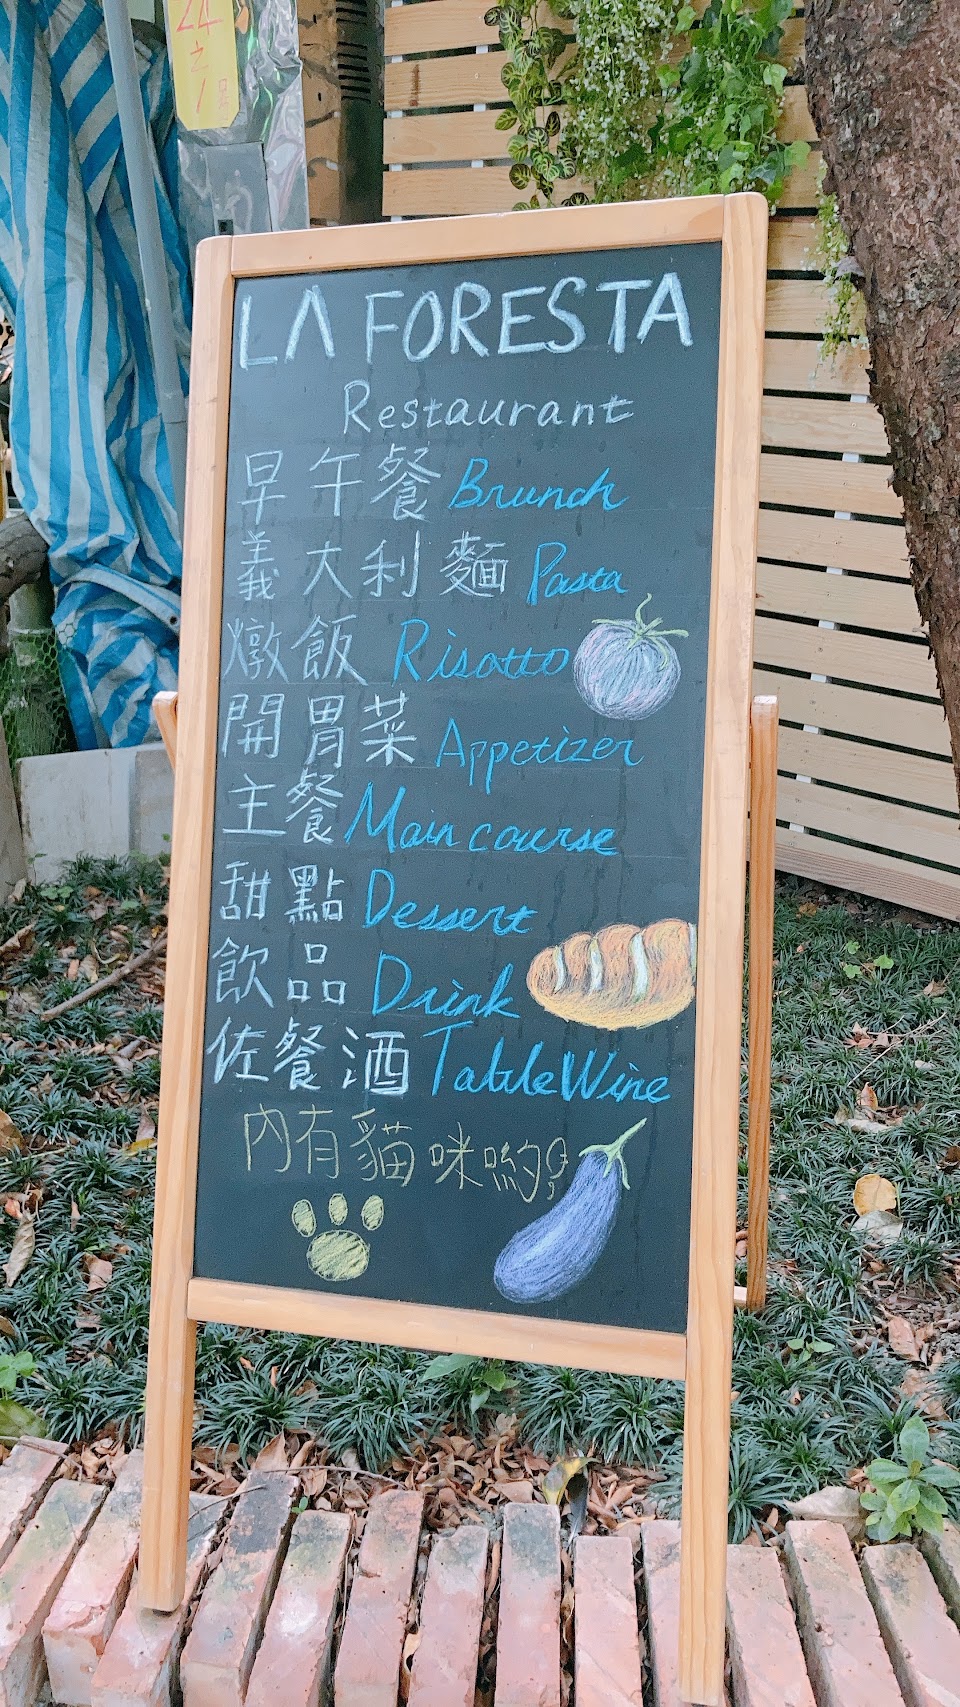 24
之
1
LA FORESTA
Restaurant
早午餐 Brunch
義大利麵 Pasta
燉飯 Risotto
開胃菜 Appetizer
主餐 Main course
甜點 Dessert
飲品 Drink
佐餐酒 Table Wine
內有貓咪喲